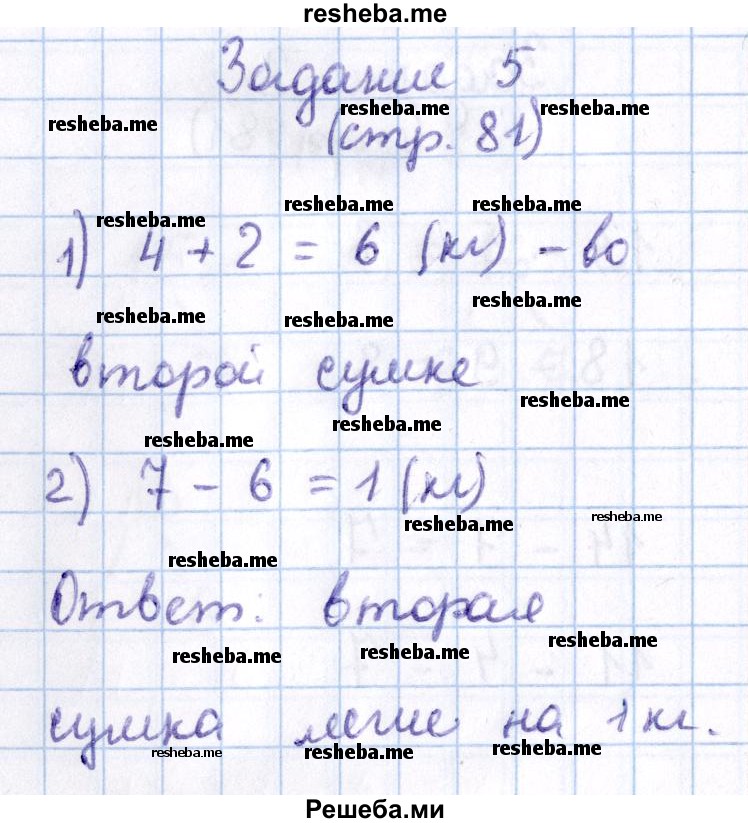 resheba.me
Задание 5
resheba.me resheba.me
resheba.me
(стр. 81)
resheba.me resheba.me
resheba.me
1) 4 + 2 = 6 (кг) - во
resheba.me
resheba.me resheba.me
второй сумке
resheba.me
resheba.me
resheba.me
2) 7 - 6 = 1 (кг)
resheba.me resheba.me
resheba.me
Ответ: вторая
resheba.me resheba.me resheba.me
сумка легче на 1 кг.
resheba.me resheba.me resheba.me
Решеба.ми